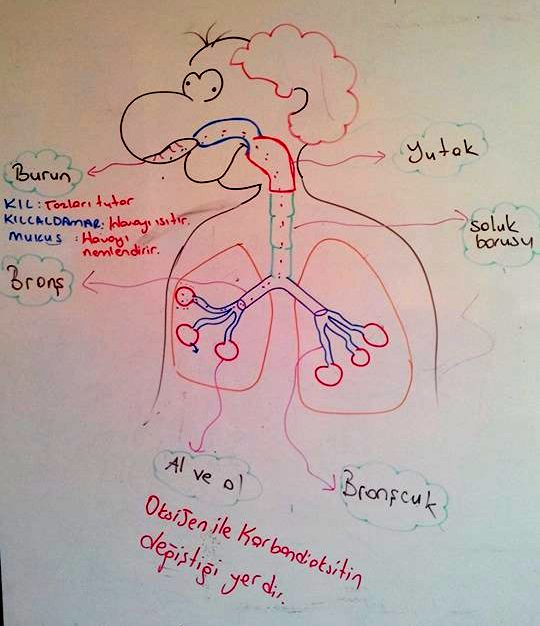 Yutak
Burun
KIL : Tozları tutar
KILCALDAMAR: Havayı ısıtır.
MUKUS : Havayı
nemlendirir.
soluk
borusu
Bronş
Al ve ol
Bronşcuk
Oksijen ile Karbondioksitin
değiştiği yerdir.